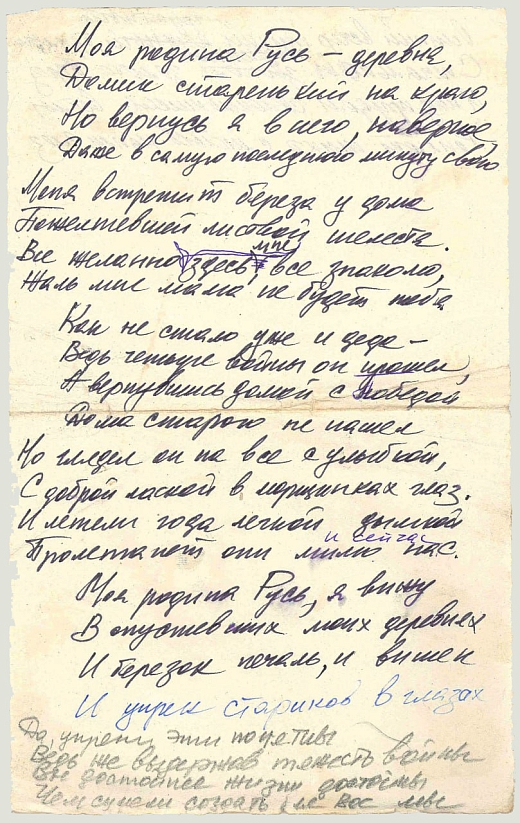 Моя родина Русь – деревня,
Домик старенький на краю,
Но вернусь я в него, наверное
Даже в самую последнюю минуту свою
Меня встретит береза у дома
Пожелтевшей листвой шелестя.
мне
Все желанно здесь, все знакомо,
Жаль мне мама не будет тебя
Как не стало уже и деда –
Ведь четыре войны он прошел,
А вернувшись домой с победой
Дома старого не нашел
Но глядел он на все с улыбкой,
С доброй лаской в морщинках глаз.
И летели года легкой дымкой
и сейчас
Пролетают они мимо нас.
Моя родина Русь, я вижу
В опустевших моих деревнях
И березок печаль, и вишен
И упрек стариков в глазах
Да, упреки эти понятны
Ведь же выдержав тяжесть войны
Вы достойнее жизни достойны
Чем сумели создать для вас мы